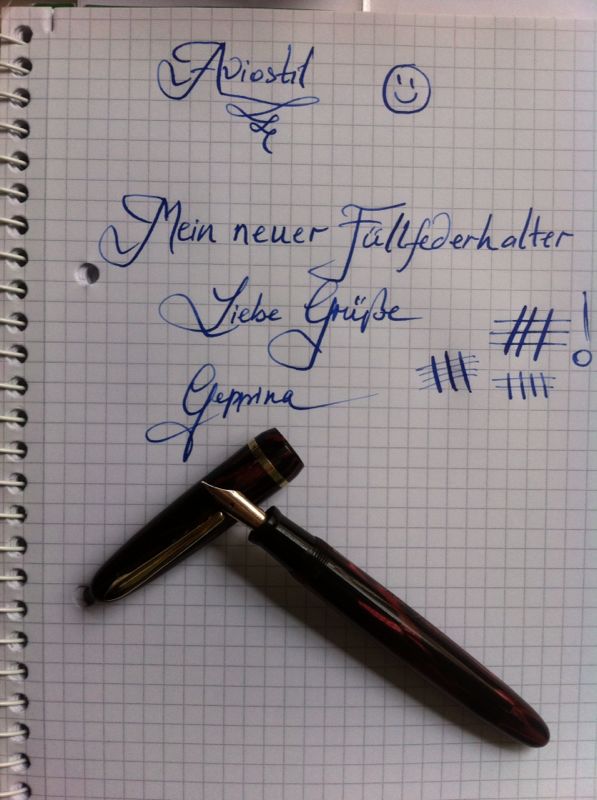 Aviostil
Mein neuer Füllfederhalter
Liebe Grüße
Geppina